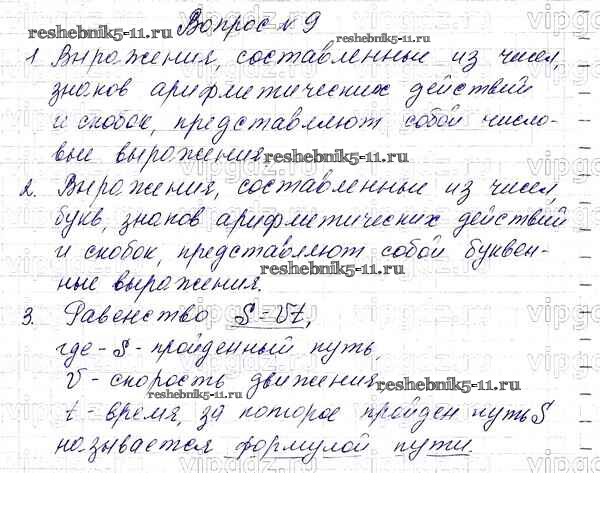 Вопрос № 9
reshebnik5-11.ru
reshebnik5-11.ru
1 Выражения, составленные из чисел,
знаков арифметических действий
и скобок, представляют собой число-
вые выражения.
reshebnik5-11.ru
2. Выражения, составленные из чисел,
букв, знаков арифметических действий
и скобок, представляют собой буквен-
ные выражения.
reshebnik5-11.ru
3. Равенство S = Vt,
где - S - пройденный путь,
V - скорость движения,
reshebnik5-11.ru
t - время, за которое пройден путь S
называется формулой пути.